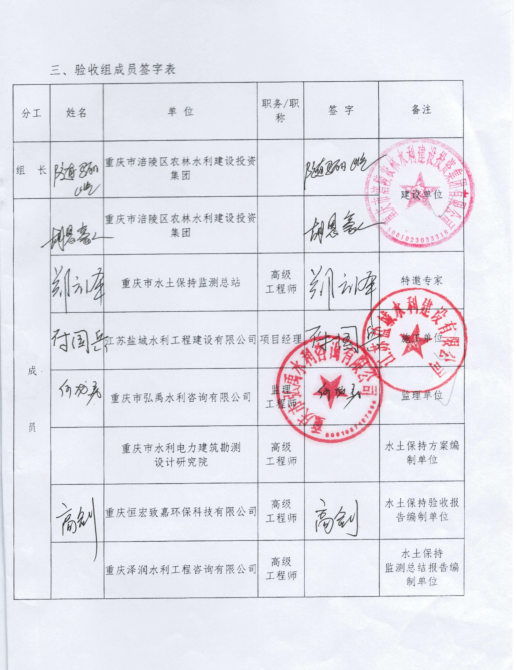 三、验收组成员签字表
分工 姓名 单位 职务/职称 签字 备注
组长 重庆市涪陵区农林水利建设投资集团 建设单位
成员
胡恩豪 重庆市涪陵区农林水利建设投资集团 胡恩豪
重庆市水土保持监测总站 高级工程师 特邀专家
付国兵 江苏盐城水利工程建设有限公司 项目经理 付国兵 施工单位
重庆市弘禹水利咨询有限公司 监理工程师 监理单位
重庆市水利电力建筑勘测设计研究院 高级工程师 水土保持方案编制单位
高剑 重庆恒宏致嘉环保科技有限公司 高级工程师 高剑 水土保持验收报告编制单位
重庆泽润水利工程咨询有限公司 高级工程师 水土保持监测总结报告编制单位
江苏盐城水利建设有限公司
重庆市弘禹水利咨询有限公司